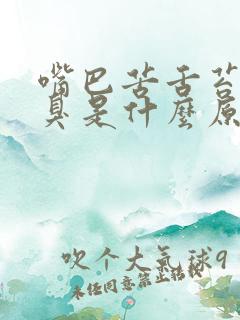 嘴巴苦舌苔
臭是什麼原
吹个大气球9
未经同意禁止转载